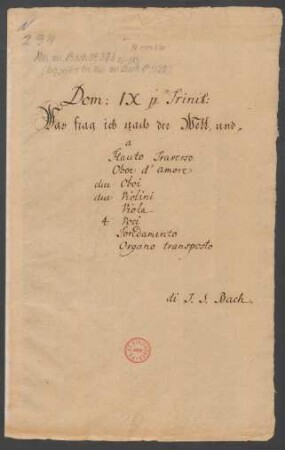 294
Dom: IX p. Trinit:
Was frag ich nach der Welt, und
a
Flauto Traverso
Oboe d'amore
due Oboi
due Violini
Viola
4 Voci
Fondamento
Organo transposto
di J. S. Bach.